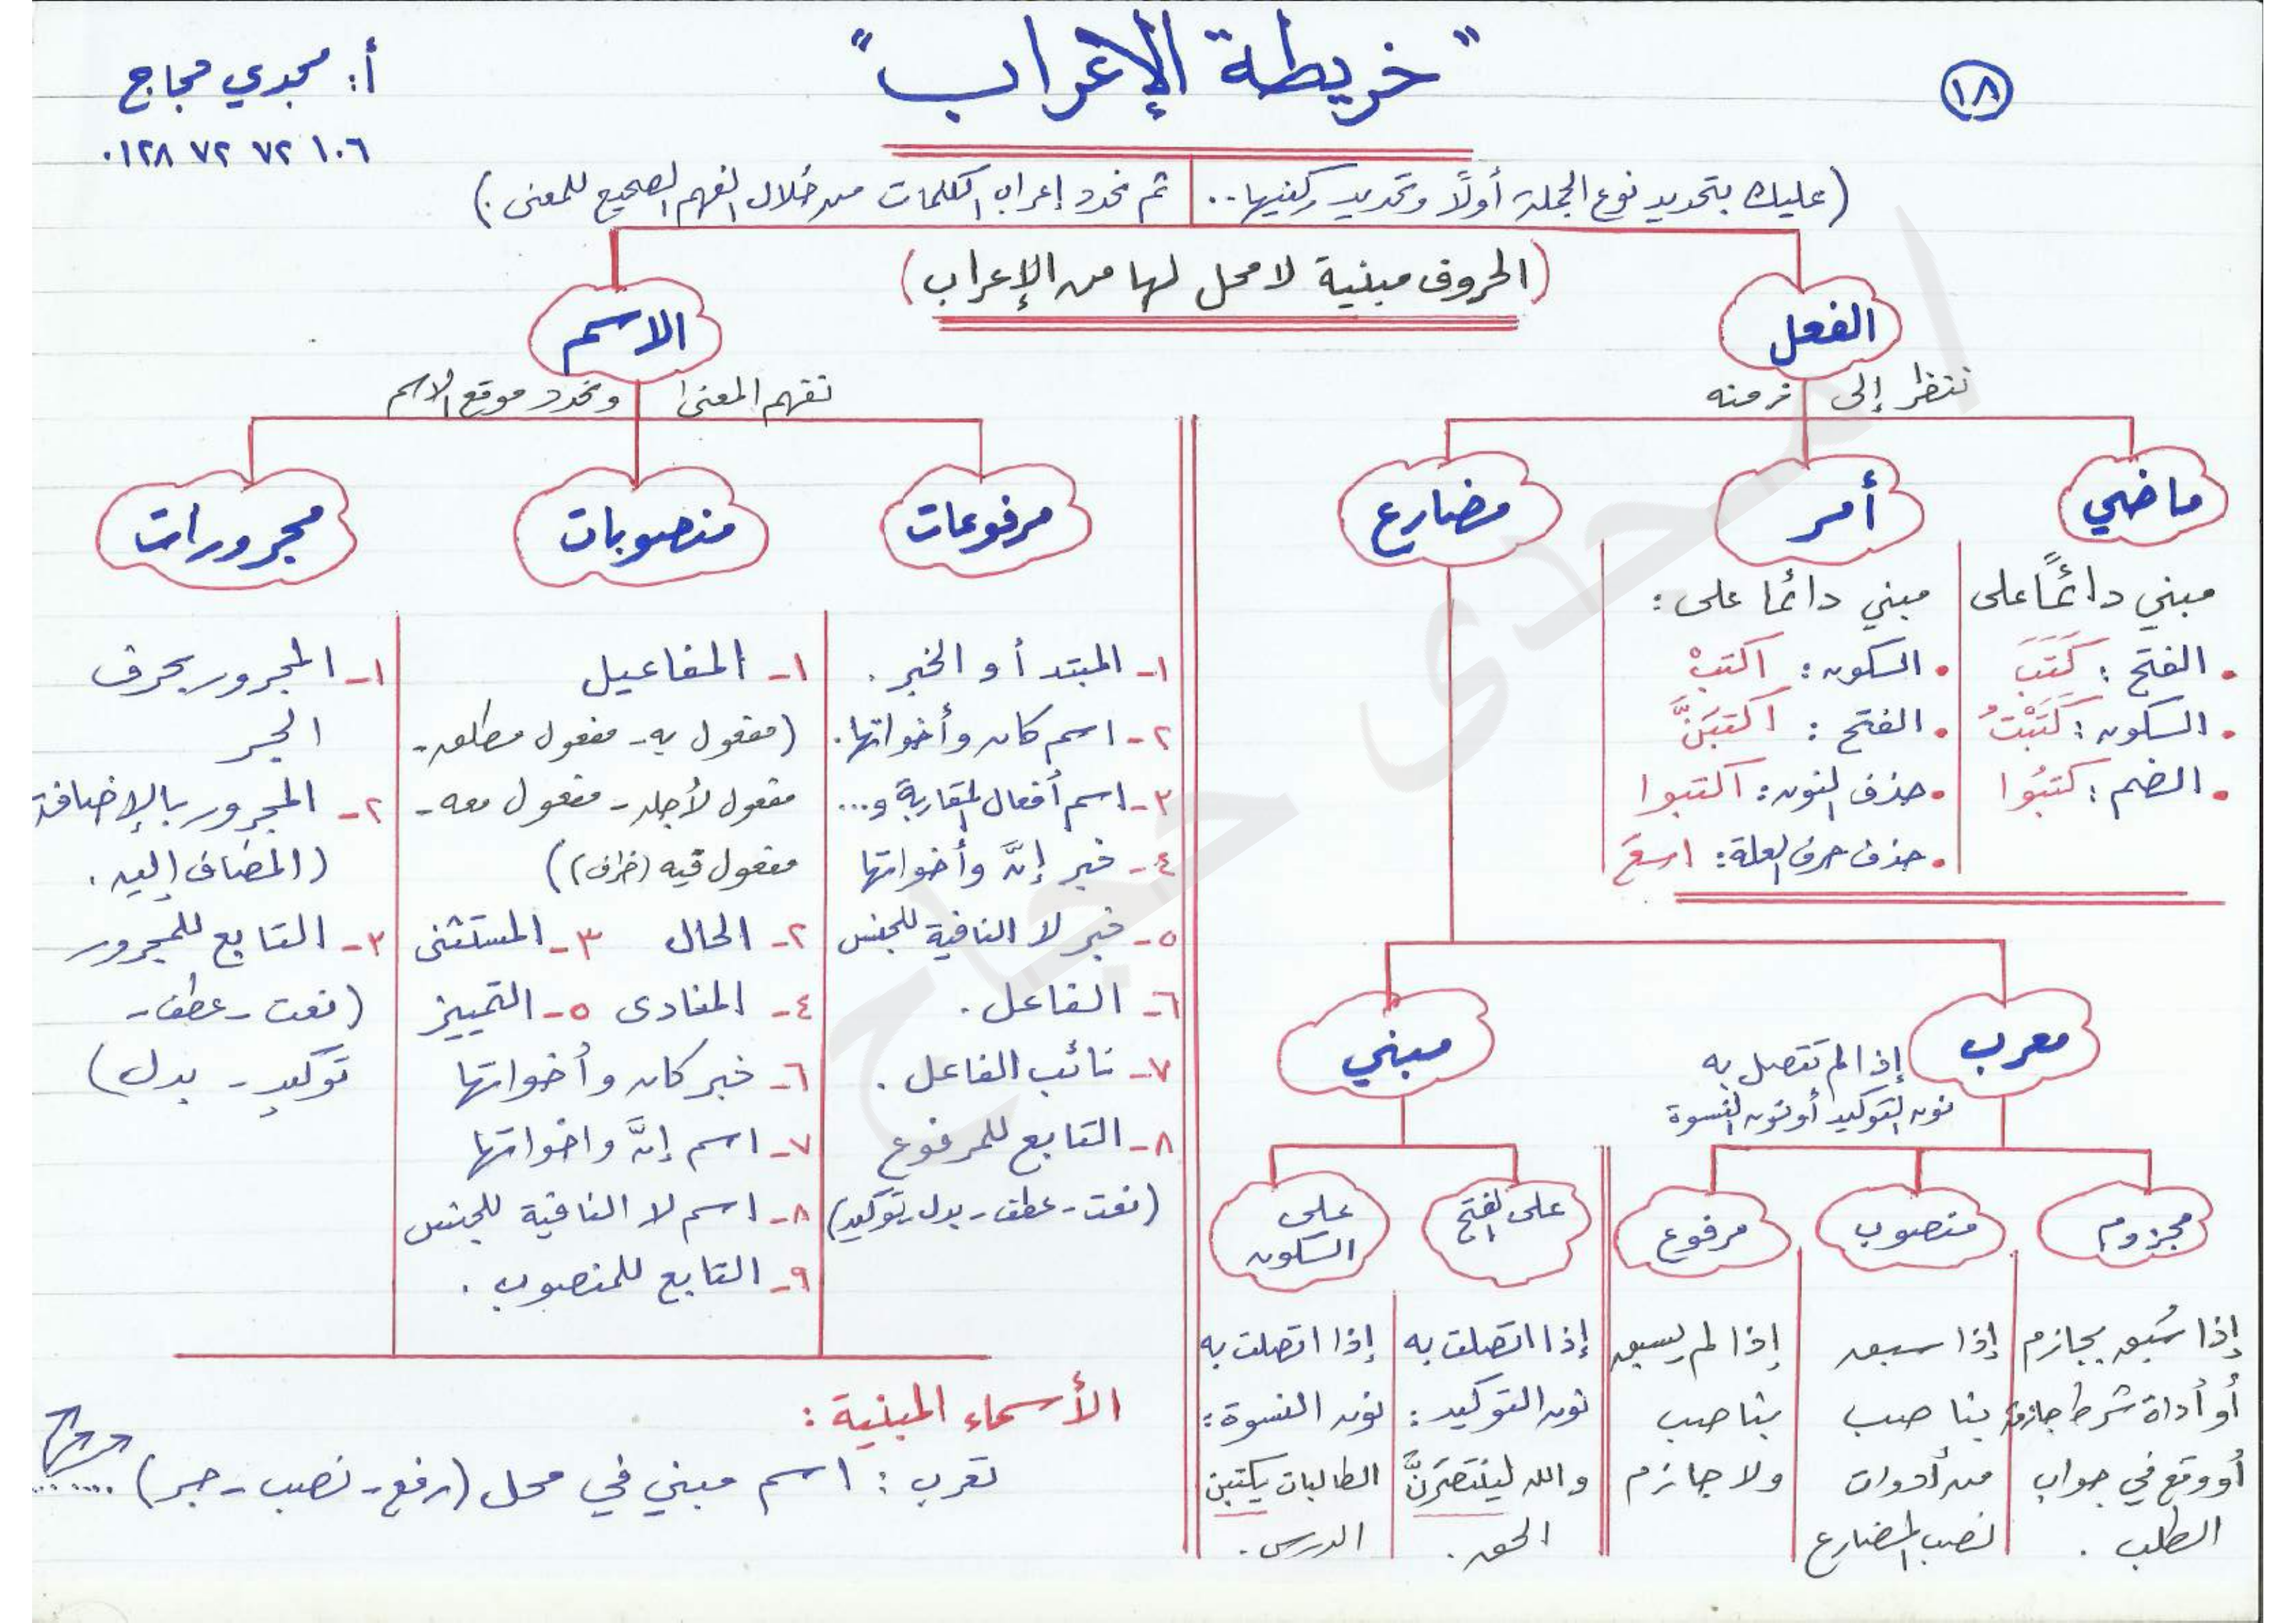 ١٨
"خريطة الإعراب"
أ: مجدي حجاج
٠١٢٨ ٧٢ ٧٢ ١٠٦
(عليك بتحديد نوع الجملة أولاً وتحديد ركنيها.. ثم نحدد إعراب الكلمات من خلال الفهم الصحيح للمعنى.)
(الحروف مبنية لا محل لها من الإعراب)
الفعل
ننظر إلى زمنه
ماضي
مبني دائمًا على
• الفتح: كَتَبَ
• السكون: كَتَبْتُ
• الضم: كتبُوا
أمر
مبني دائما على:
• السكون: اكتبْ
• الفتح: اكتبَنَّ
• حذف النون: اكتبوا
• حذف حرف العلة: اسعَ
مضارع
معرب
إذا لم تتصل به
نون التوكيد أو نون النسوة
مجزوم
إذا سُبق بجازم
أو أداة شرط جازمة
أو وقع في جواب
الطلب.
منصوب
إذا سبق
بناصب
من أدوات
نصب المضارع
مرفوع
إذا لم يسبق
بناصب
ولا جازم
مبني
على الفتح
إذا اتصلت به
نون التوكيد:
والله لينتصرَنَّ
الحق.
على
السكون
إذا اتصلت به
نون النسوة:
الطالبات يكتبن
الدرس.
الاسم
نفهم المعنى ونحدد موقع الاسم
مرفوعات
١- المبتدأ أو الخبر.
٢- اسم كان وأخواتها.
٣- اسم أفعال المقاربة و...
٤- خبر إنَّ وأخواتها
٥- خبر لا النافية للجنس
٦- الفاعل.
٧- نائب الفاعل.
٨- التابع للمرفوع
(نعت - عطف - بدل - توكيد)
منصوبات
١- المفاعيل
(مفعول به - مفعول مطلق -
مفعول لأجله - مفعول معه -
مفعول فيه (ظرف))
٢- الحال ٣- المستثنى
٤- المنادى ٥- التمييز
٦- خبر كان وأخواتها
٧- اسم إنَّ واخواتها
٨- اسم لا النافية للجنس
٩- التابع للمنصوب.
مجرورات
١- المجرور بحرف
الجر
٢- المجرور بالإضافة
(المضاف إليه.
٣- التابع للمجرور
(نعت - عطف -
توكيد - بدل)
الأسماء المبنية:
تعرب: اسم مبني في محل (رفع - نصب - جر) ........
أ/ مجدى حجاج